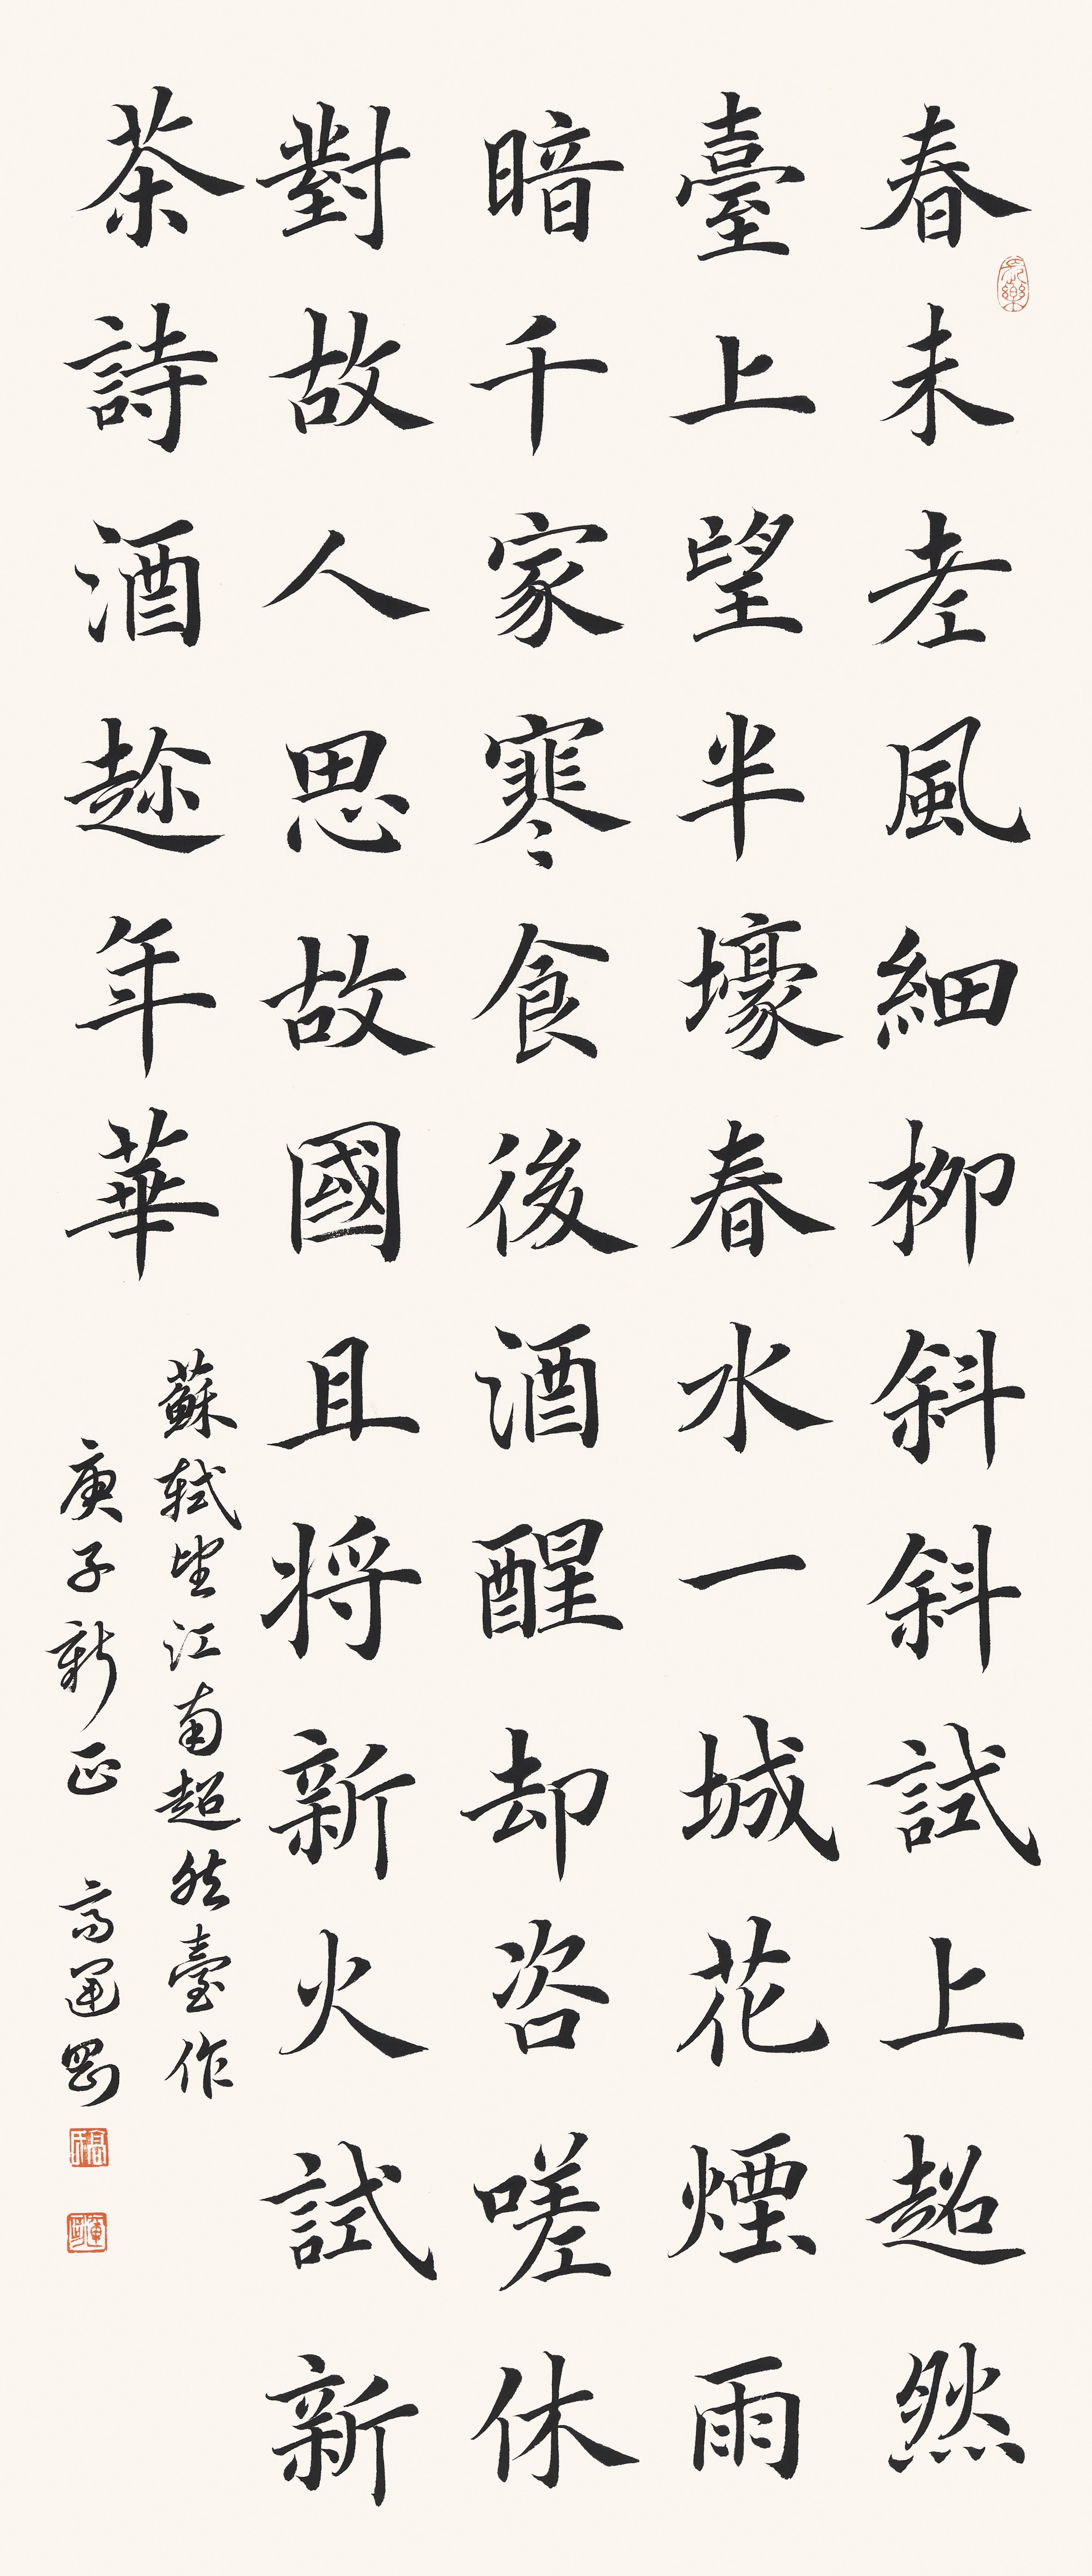 春未老風細柳斜斜試上超然
長樂
臺上望半壕春水一城花煙雨
暗千家寒食後酒醒却咨嗟休
對故人思故國且将新火試新
茶詩酒趂年華
蘇軾望江南超然臺作
庚子新正 高運剛
高氏